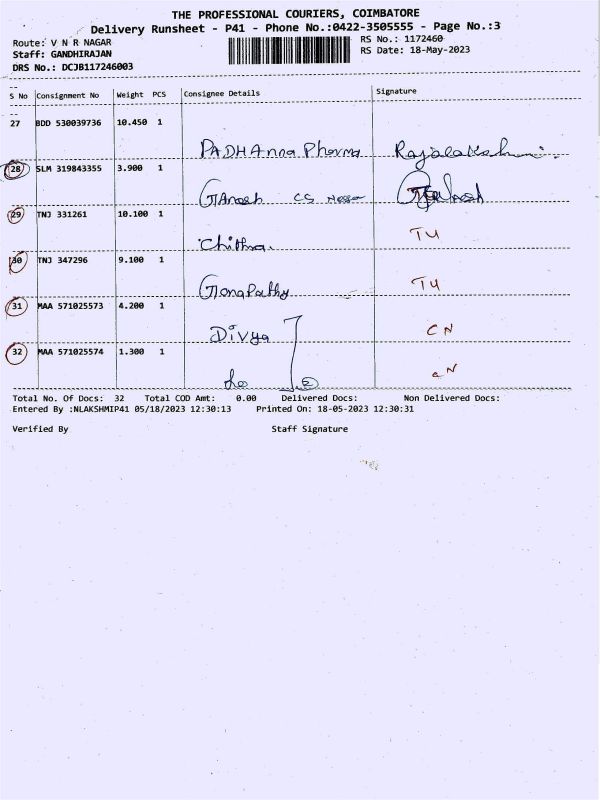 THE PROFESSIONAL COURIERS, COIMBATORE
Delivery Runsheet - P41 - Phone No.:0422-3505555 - Page No.:3
Route: V N R NAGAR RS No.: 1172460
Staff: GANDHIRAJAN RS Date: 18-May-2023
DRS No.: DCJB117246003
S No Consignment No Weight PCS Consignee Details Signature
27 BDD 530039736 10.450 1
PADHAnna Pharma Rajalakshmi
28 SLM 319843355 3.900 1
GAnesh CS
29 TNJ 331261 10.100 1
Chithra. TU
30 TNJ 347296 9.100 1
GanaPathy TU
31 MAA 571025573 4.200 1
Divya CN
32 MAA 571025574 1.300 1
CN
Total No. Of Docs: 32 Total COD Amt: 0.00 Delivered Docs: Non Delivered Docs:
Entered By :NLAKSHMIP41 05/18/2023 12:30:13 Printed On: 18-05-2023 12:30:31
Verified By Staff Signature